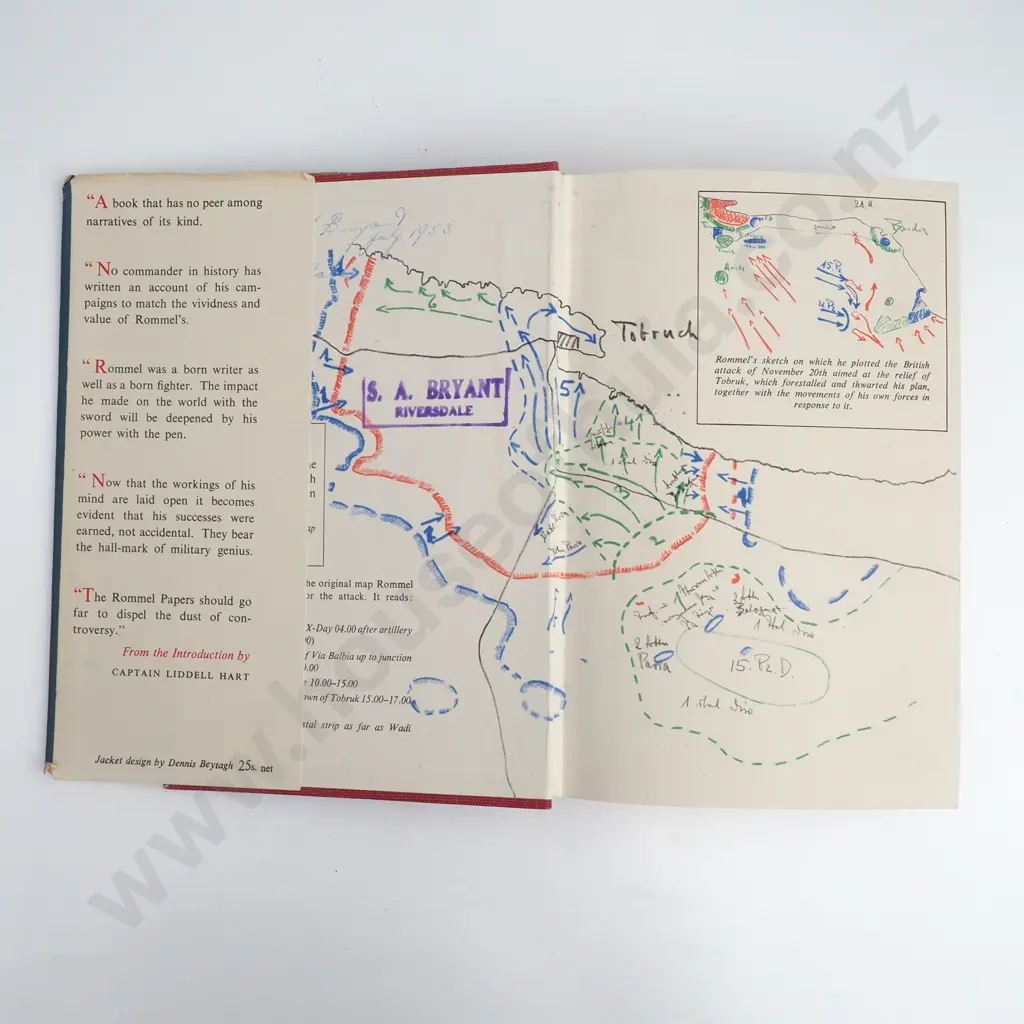 "A book that has no peer among
narratives of its kind.
"No commander in history has
written an account of his cam-
paigns to match the vividness and
value of Rommel's.
"Rommel was a born writer as
well as a born fighter. The impact
he made on the world with the
sword will be deepened by his
power with the pen.
"Now that the workings of his
mind are laid open it becomes
evident that his successes were
earned, not accidental. They bear
the hall-mark of military genius.
"The Rommel Papers should go
far to dispel the dust of con-
troversy."
From the Introduction by
CAPTAIN LIDDELL HART
Jacket design by Dennis Beytagh 25s. net
Bryant
July 1953
S. A. BRYANT
RIVERSDALE
he original map Rommel
or the attack. It reads:
X-Day 04.00 after artillery
f Via Balbia up to junction
10.00-15.00
own of Tobruk 15.00-17.00
stal strip as far as Wadi
Tobruch
6
5
4
3
2
1 ital Div
Bardia
15. Pz
Rommel's sketch on which he plotted the British
attack of November 20th aimed at the relief of
Tobruk, which forestalled and thwarted his plan,
together with the movements of his own forces in
response to it.
1 ital Div
Pavia
15. Pz. D.
1 ital Div